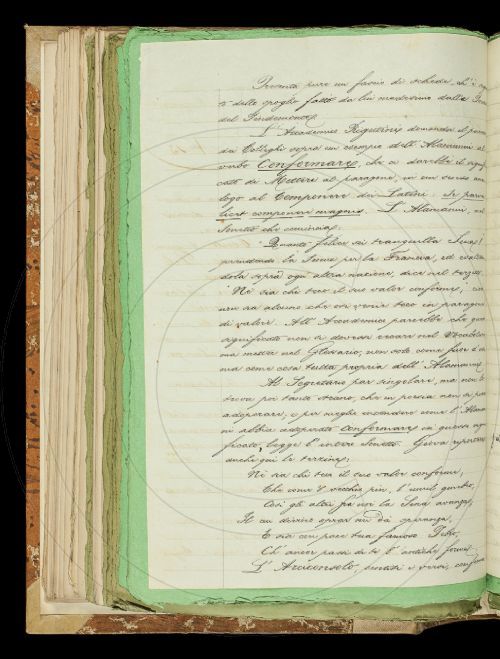 Presenta pure un fascio di schede, ch'è
te dallo spoglio fatto da lui medesimo dalle
del Pindemonte.
L'Accademico Rigutini domanda il parere
da Colleghi sopra un esempio dell'Alamanni al
verbo Confermare, che a darebbe il signi
cato di Mettere al paragone, in un senso ana
logo al Componere dei Latini: Si parva
licet componere magnis. L'Alamanni, nel
Sonetto che comincia:
"Quanto felice sei tranquilla Sena!
prendendo la Senna per la Francia, ed esaltan
dola sopra ogni altra nazione, dice nel terzetto
"Né sia chi teco il suo valor conforme," cioè
non sia alcuno che osi venir teco in paragone
di valore. All'Accademico parrebbe che questo
significato non si dovesse recare nel Vocabolario
ma metter nel Glossario, non così come fuor d'uso
ma come cosa tutta propria dell'Alamanni.
Al Segretario par singolare, ma non lo
trova poi tanto strano, che in poesia non si possa
adoperare, e per meglio intendere come l'Alaman
ni abbia adoperato Confermare in questo signi
ficato, legge l'intero Sonetto. Giova riportare
anche qui le terzine:
Né sia chi teco il suo valor conforme,
Che come 'l vecchio pin, l'umil
Così gli altri par voi la Sena avanza,
E sia con pace tua famoso Tebro,
Ch'ancor passi di te l'antiche forme.
L'Arciconsolo, sentiti i versi,